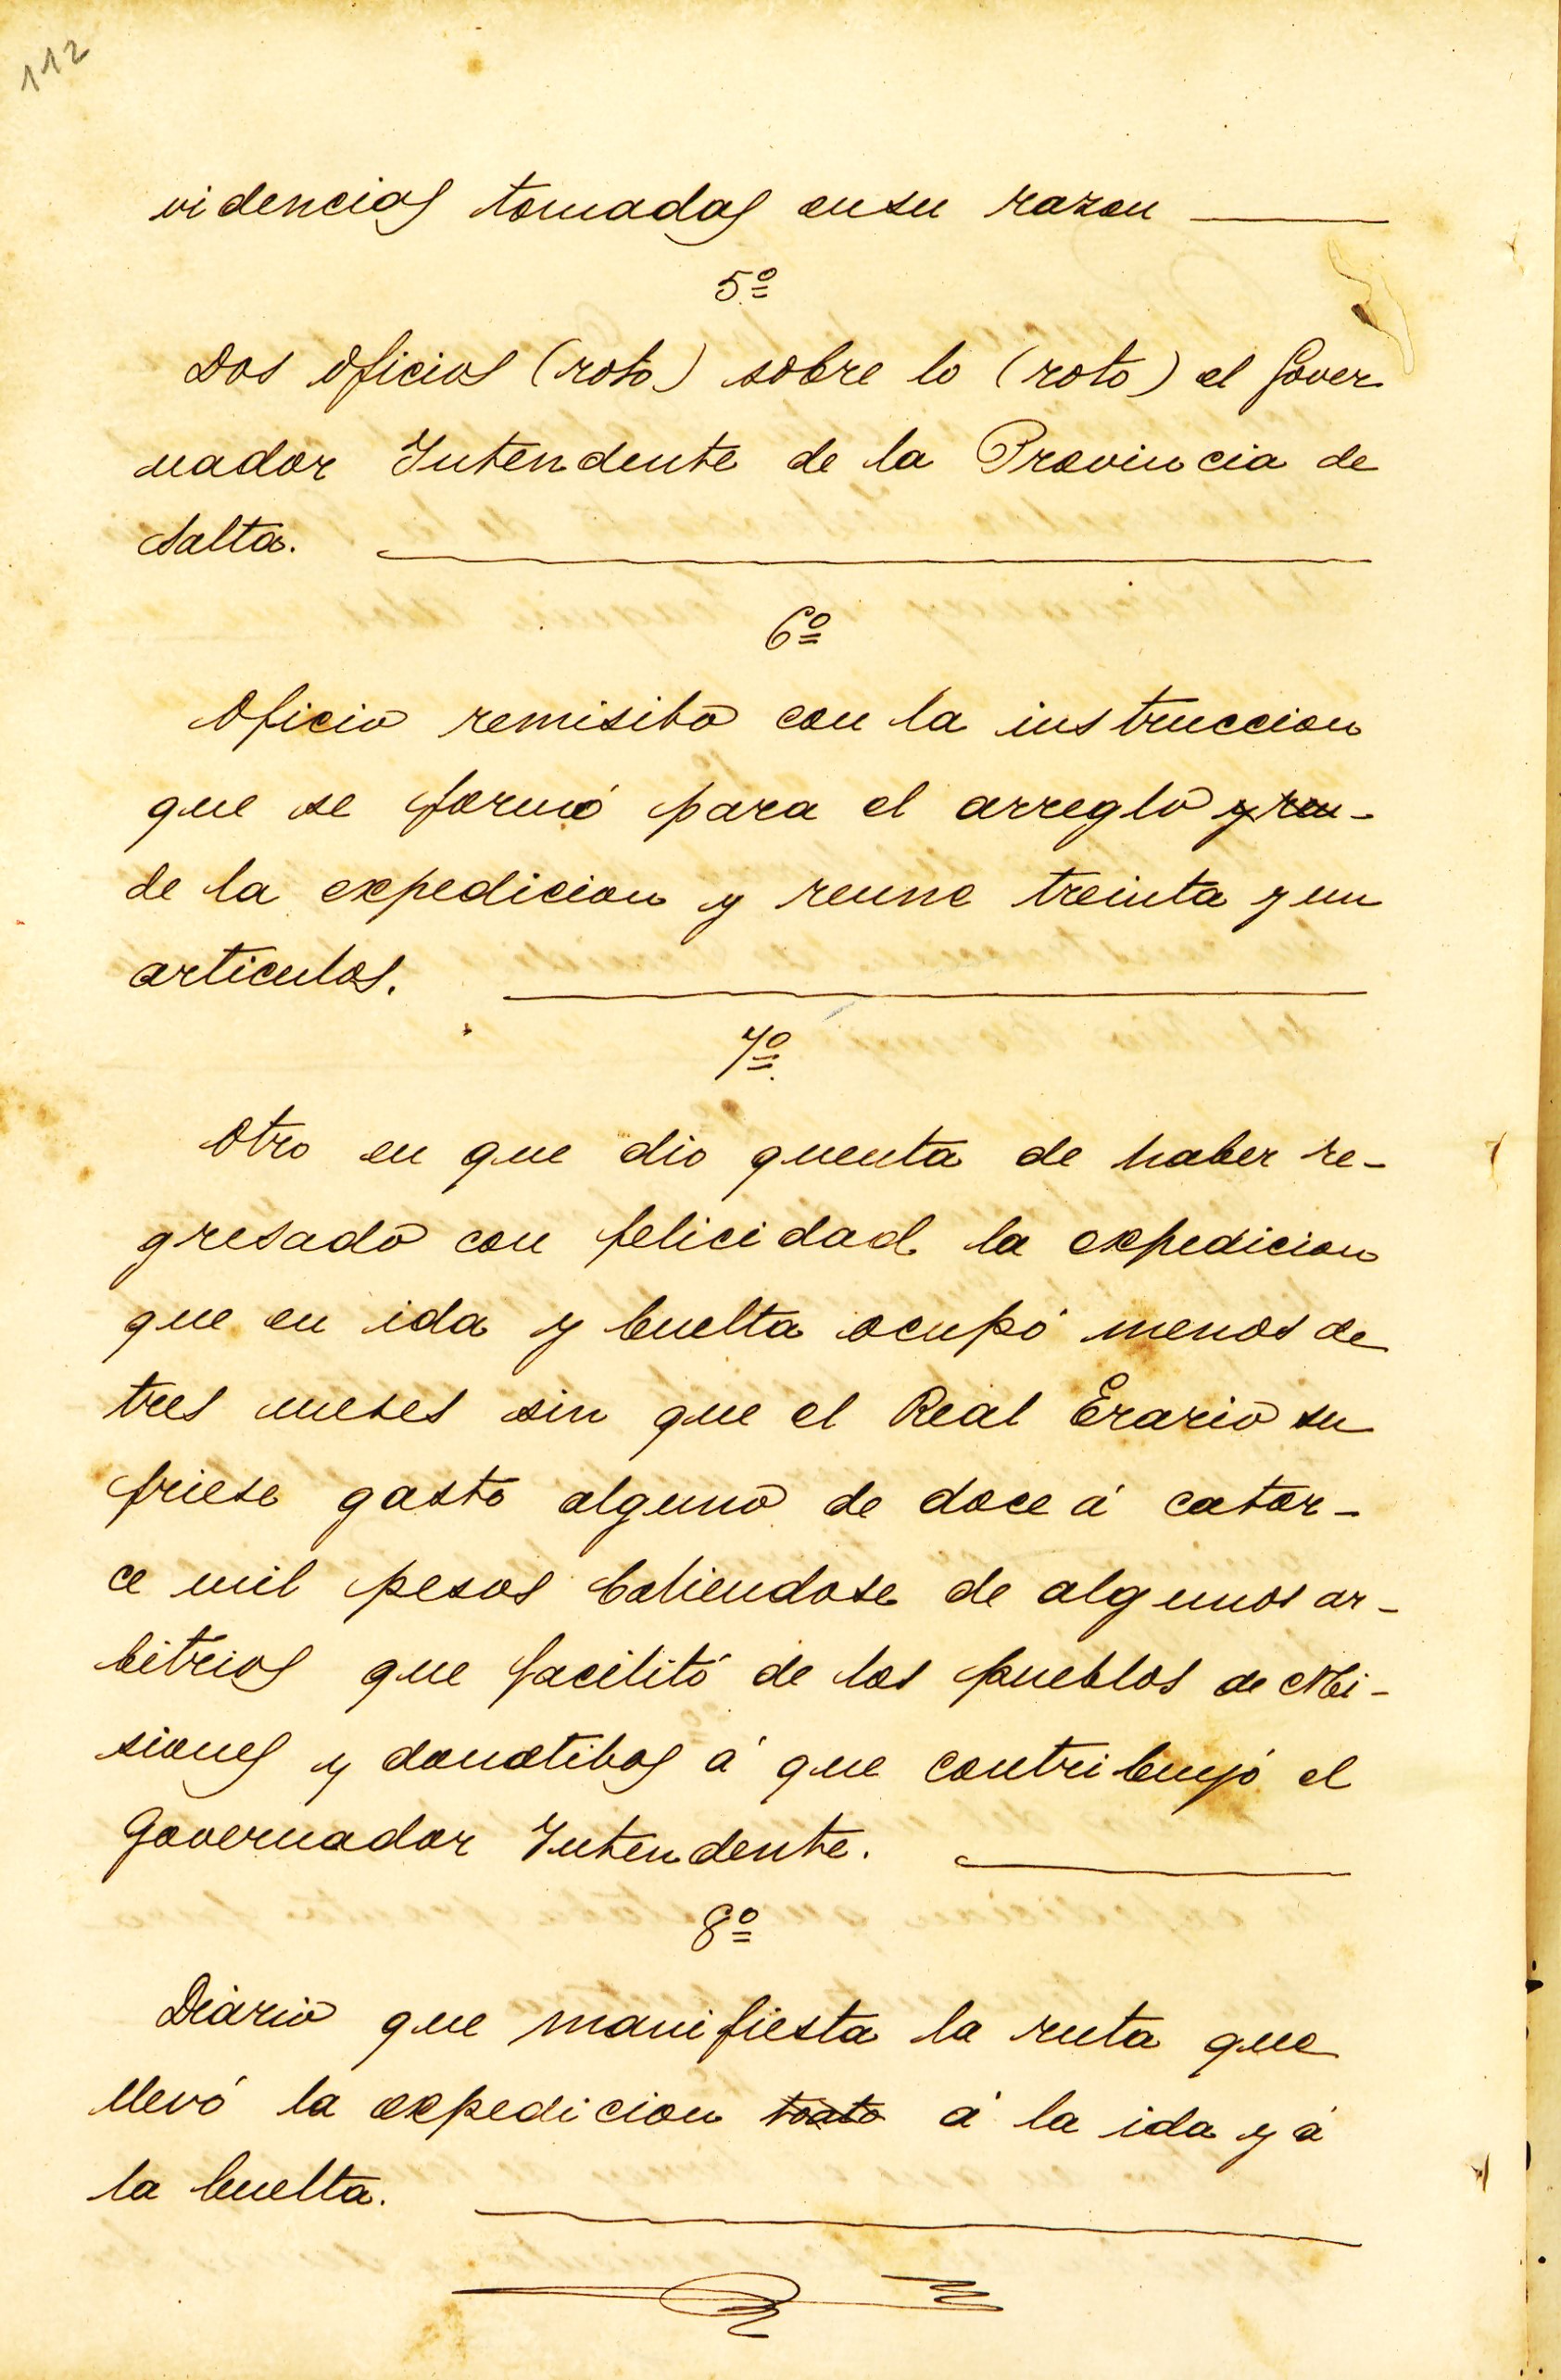 112
videncias tomadas en su razon
5º
Dos oficios (roto) sobre lo (roto) el Gover
nador Intendente de la Provincia de
Salta.
6º
Oficio remisibo con la instruccion
que se formó para el arreglo y reu-
de la expedicion y reune treinta y un
articulos.
7º
Otro en que dio quenta de haber re-
gresado con felicidad la expedicion
que en ida y buelta ocupó menos de
tres meses sin que el Real Erario su
friese gasto alguno de doce á cator-
ce mil pesos baliendose de algunos ar-
bitrios que facilitó de los pueblos de Mi-
siones y donatibos á que contribuyó el
Governador Intendente.
8º
Diario que manifiesta la ruta que
llevó la expedicion á la ida y á
la buelta.